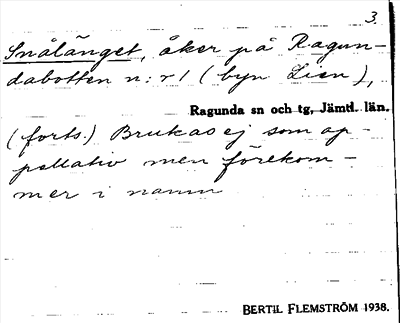 3.
Snålänget, åker på Ragun-
dabotten n:r 1 (byn Lien),
Ragunda sn och tg, Jämtl. län.
(forts.) Brukas ej som ap-
pellativ men förekom-
mer i namn
BERTIL FLEMSTRÖM 1938.